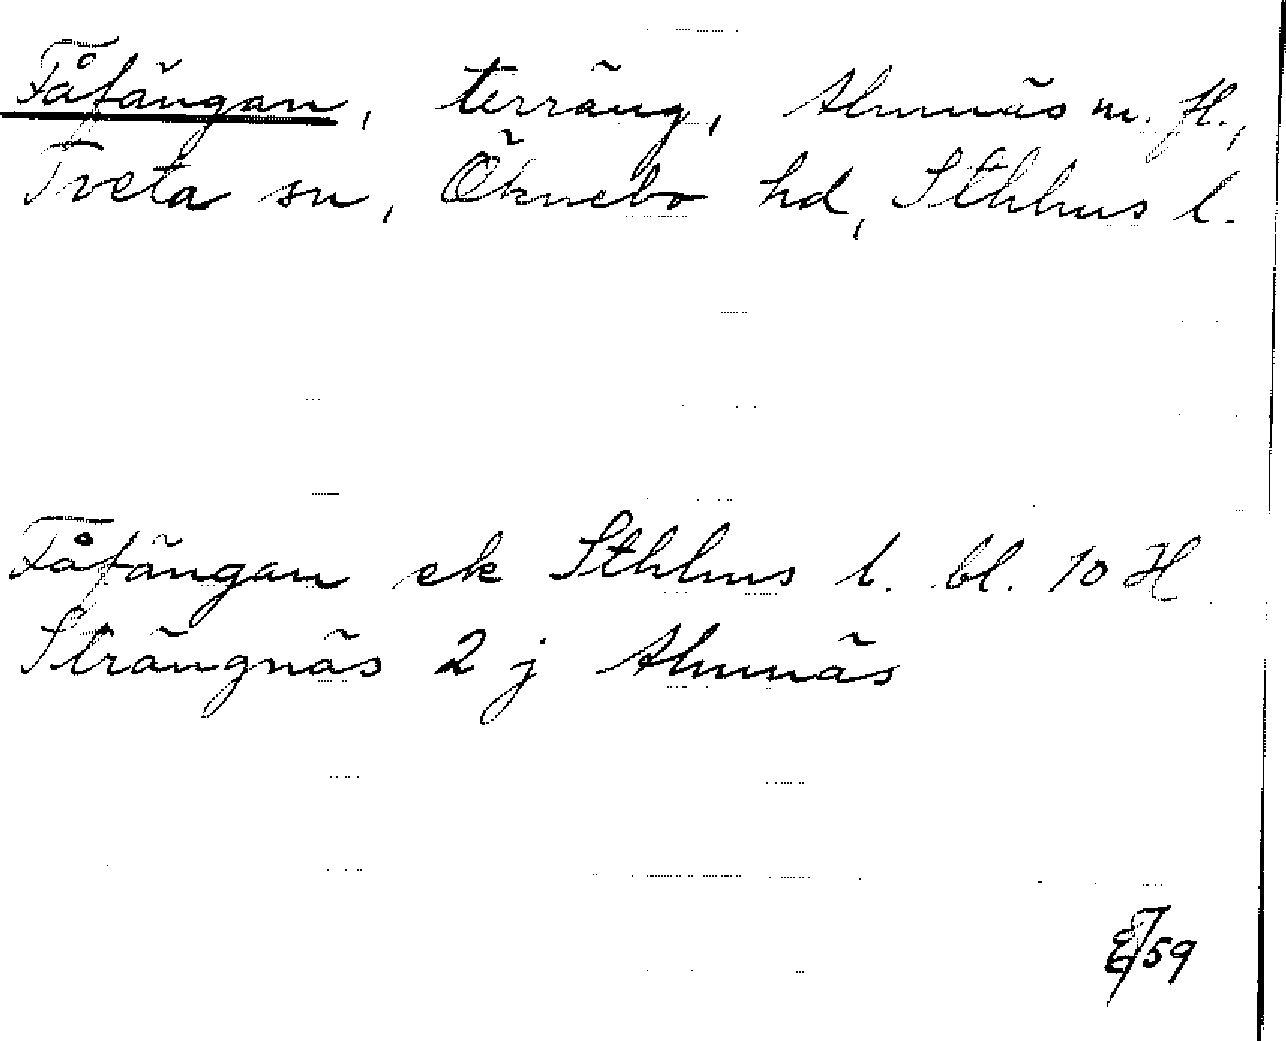 Fåfängan, terräng, Almnäs m. fl.,
Tveta sn, Öknebo hd, Sthlms l.
Fåfängan ek Sthlms l. bl. 10 H
Strängnäs 2 j Almnäs
59